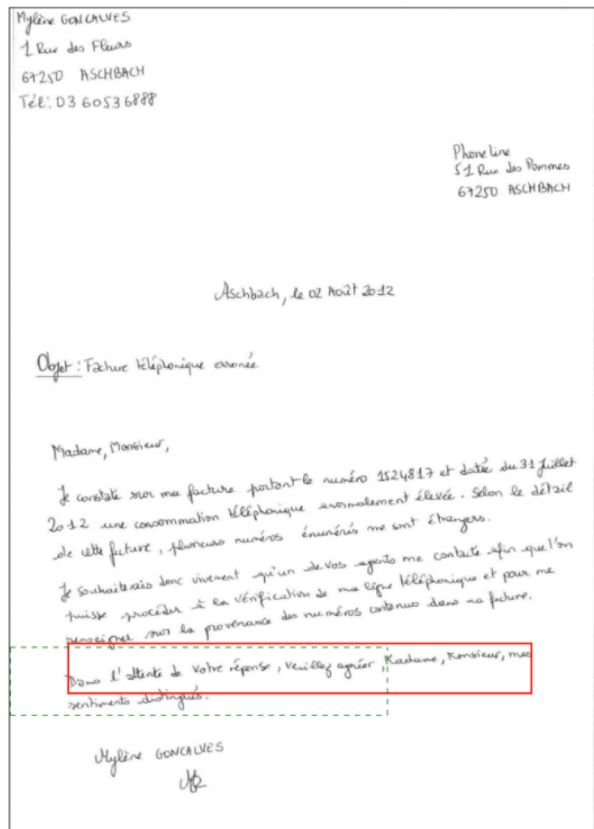 Mylène GONCALVES
1 Rue des Fleurs
67250 ASCHBACH
Tél: 03 60536888
Phoneline
51 Rue des Pommes
67250 ASCHBACH
Aschbach, le 02 Août 2012
Objet : Facture téléphonique erronée
Madame, Monsieur,
Je constate sur ma facture portant le numéro 1524817 et datée du 31 Juillet
2012 une consommation téléphonique anormalement élevée. Selon le détail
de cette facture, plusieurs numéros énumérés me sont étrangers.
Je souhaiterais donc vivement qu'un de vos agents me contacte afin que l'on
puisse procéder à la vérification de ma ligne téléphonique et pour me
renseigner sur la provenance des numéros contenus dans ma facture.
Dans l'attente de votre réponse, veuillez agréer, Madame, Monsieur, mes
sentiments distingués.
Mylène GONCALVES